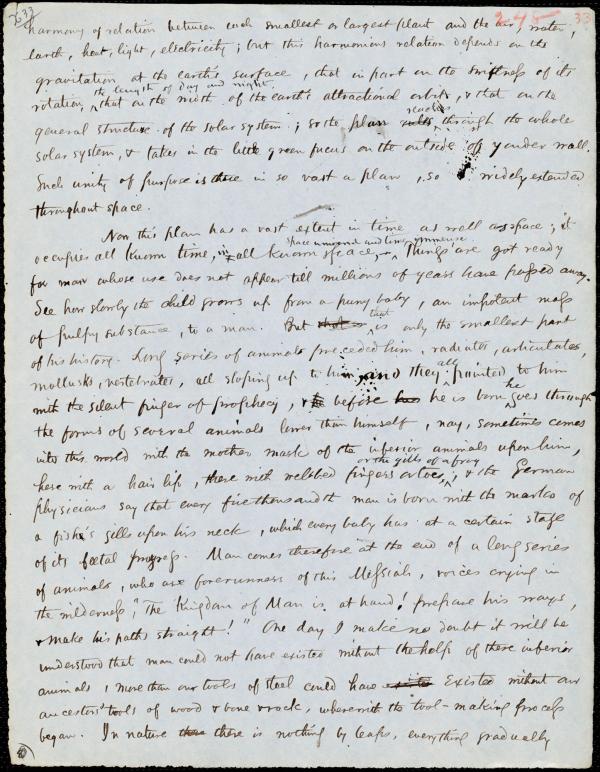 33 248 33
harmony of relation between each smallest or largest plant and the air, water,
earth, heat, light, electricity; but this harmonious relation depends on the
gravitation at the earth's surface, that in part on the swiftness of its
the length of day and night,
rotation, that on the width of the earth's attractional orbit, & that on the
reaches
general structure of the solar system; so the plan rules through the whole
solar system, & takes in the little green fucus on the outside of yonder wall.
Such unity of purpose is there in so vast a plan, so widely extended
throughout space.
Now this plan has a vast extent in time as well as space; it
space unmeasured and time immense.
occupies all known time, in all known space, Things are got ready
for man whose use does not appear till millions of years have passed away.
See how slowly the child grows up from a puny baby, an impotent mass
that
of pulpy substance, to a man. But that is only the smallest part
of his history. Long series of animals preceded him, radiates, articulates,
all
mollusks, vertebrates, all sloping up to him, and they pointed to him
he
with the silent finger of prophecy, & before has he is born goes through
the forms of several animals lower than himself, nay, sometimes comes
into this world with the mother mark of the inferior animals upon him,
or the gills of a frog
here with a hair lip, there with webbed fingers or toes, & the German
physicians say that every five thousandth man is born with the marks of
a fishe's gills upon his neck, which every baby has at a certain stage
of its foetal progress. Man comes therefore at the end of a long series
of animals, who are forerunners of this Messiah, voices crying in
the wilderness, "The Kingdom of Man is at hand! prepare his ways,
& make his paths straight!" One day I make no doubt it will be
understood that man could not have existed without the help of these inferior
animals, more than our tools of steel could have existed without our
ancestors' tools of wood & bone & rock, wherewith the tool-making process
began. In nature there there is nothing by leaps, everything gradually